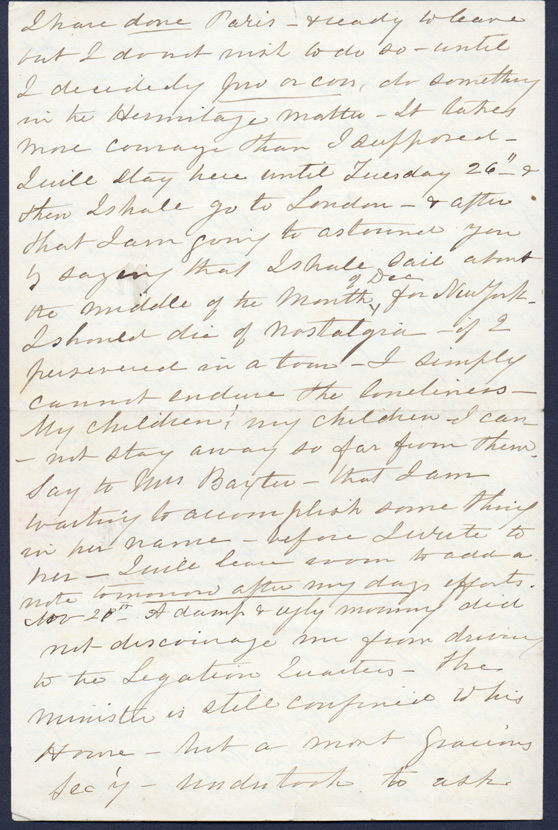 I have done Paris - & ready to leave
but I do not wish to do so - until
I decidedly pro or con, do something
in the Hermitage matter - It takes
more courage than I supposed -
I will stay here until Tuesday 26" - &
then I shall go to London - & after
that I am going to astound you
by saying that I shall sail about
the middle of the Month of Dec for New York -
I should die of nostalgia - if I
persevered in a tour - I simply
cannot endure the loneliness -
My children! my children - I can
- not stay away so far from them.
Say to Mrs Baxter - that I am
waiting to accomplish some thing
in her name - before I write to
her - I will leave room to add a
note tomorrow after my days efforts.
Nov 20th A damp & ugly morning did
not discourage me from driving
to the Legation Quarters - The
minister is still confined to his
House - but a most gracious
Sec'y - undertook to ask